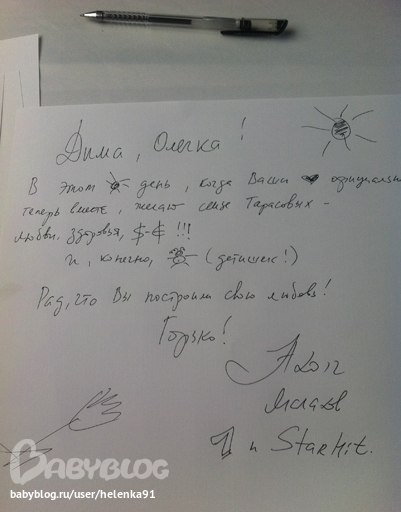 Дима, Олечка!
В этот день, когда Ваши официально
теперь вместе, желаю семье Тарасовых -
любви, здоровья, $-€ !!!
и, конечно, (детишек!)
Рад, что Вы построили свою любовь!
Горько!
и StarHit.
BABYBLOG
babyblog.ru/user/helenka91